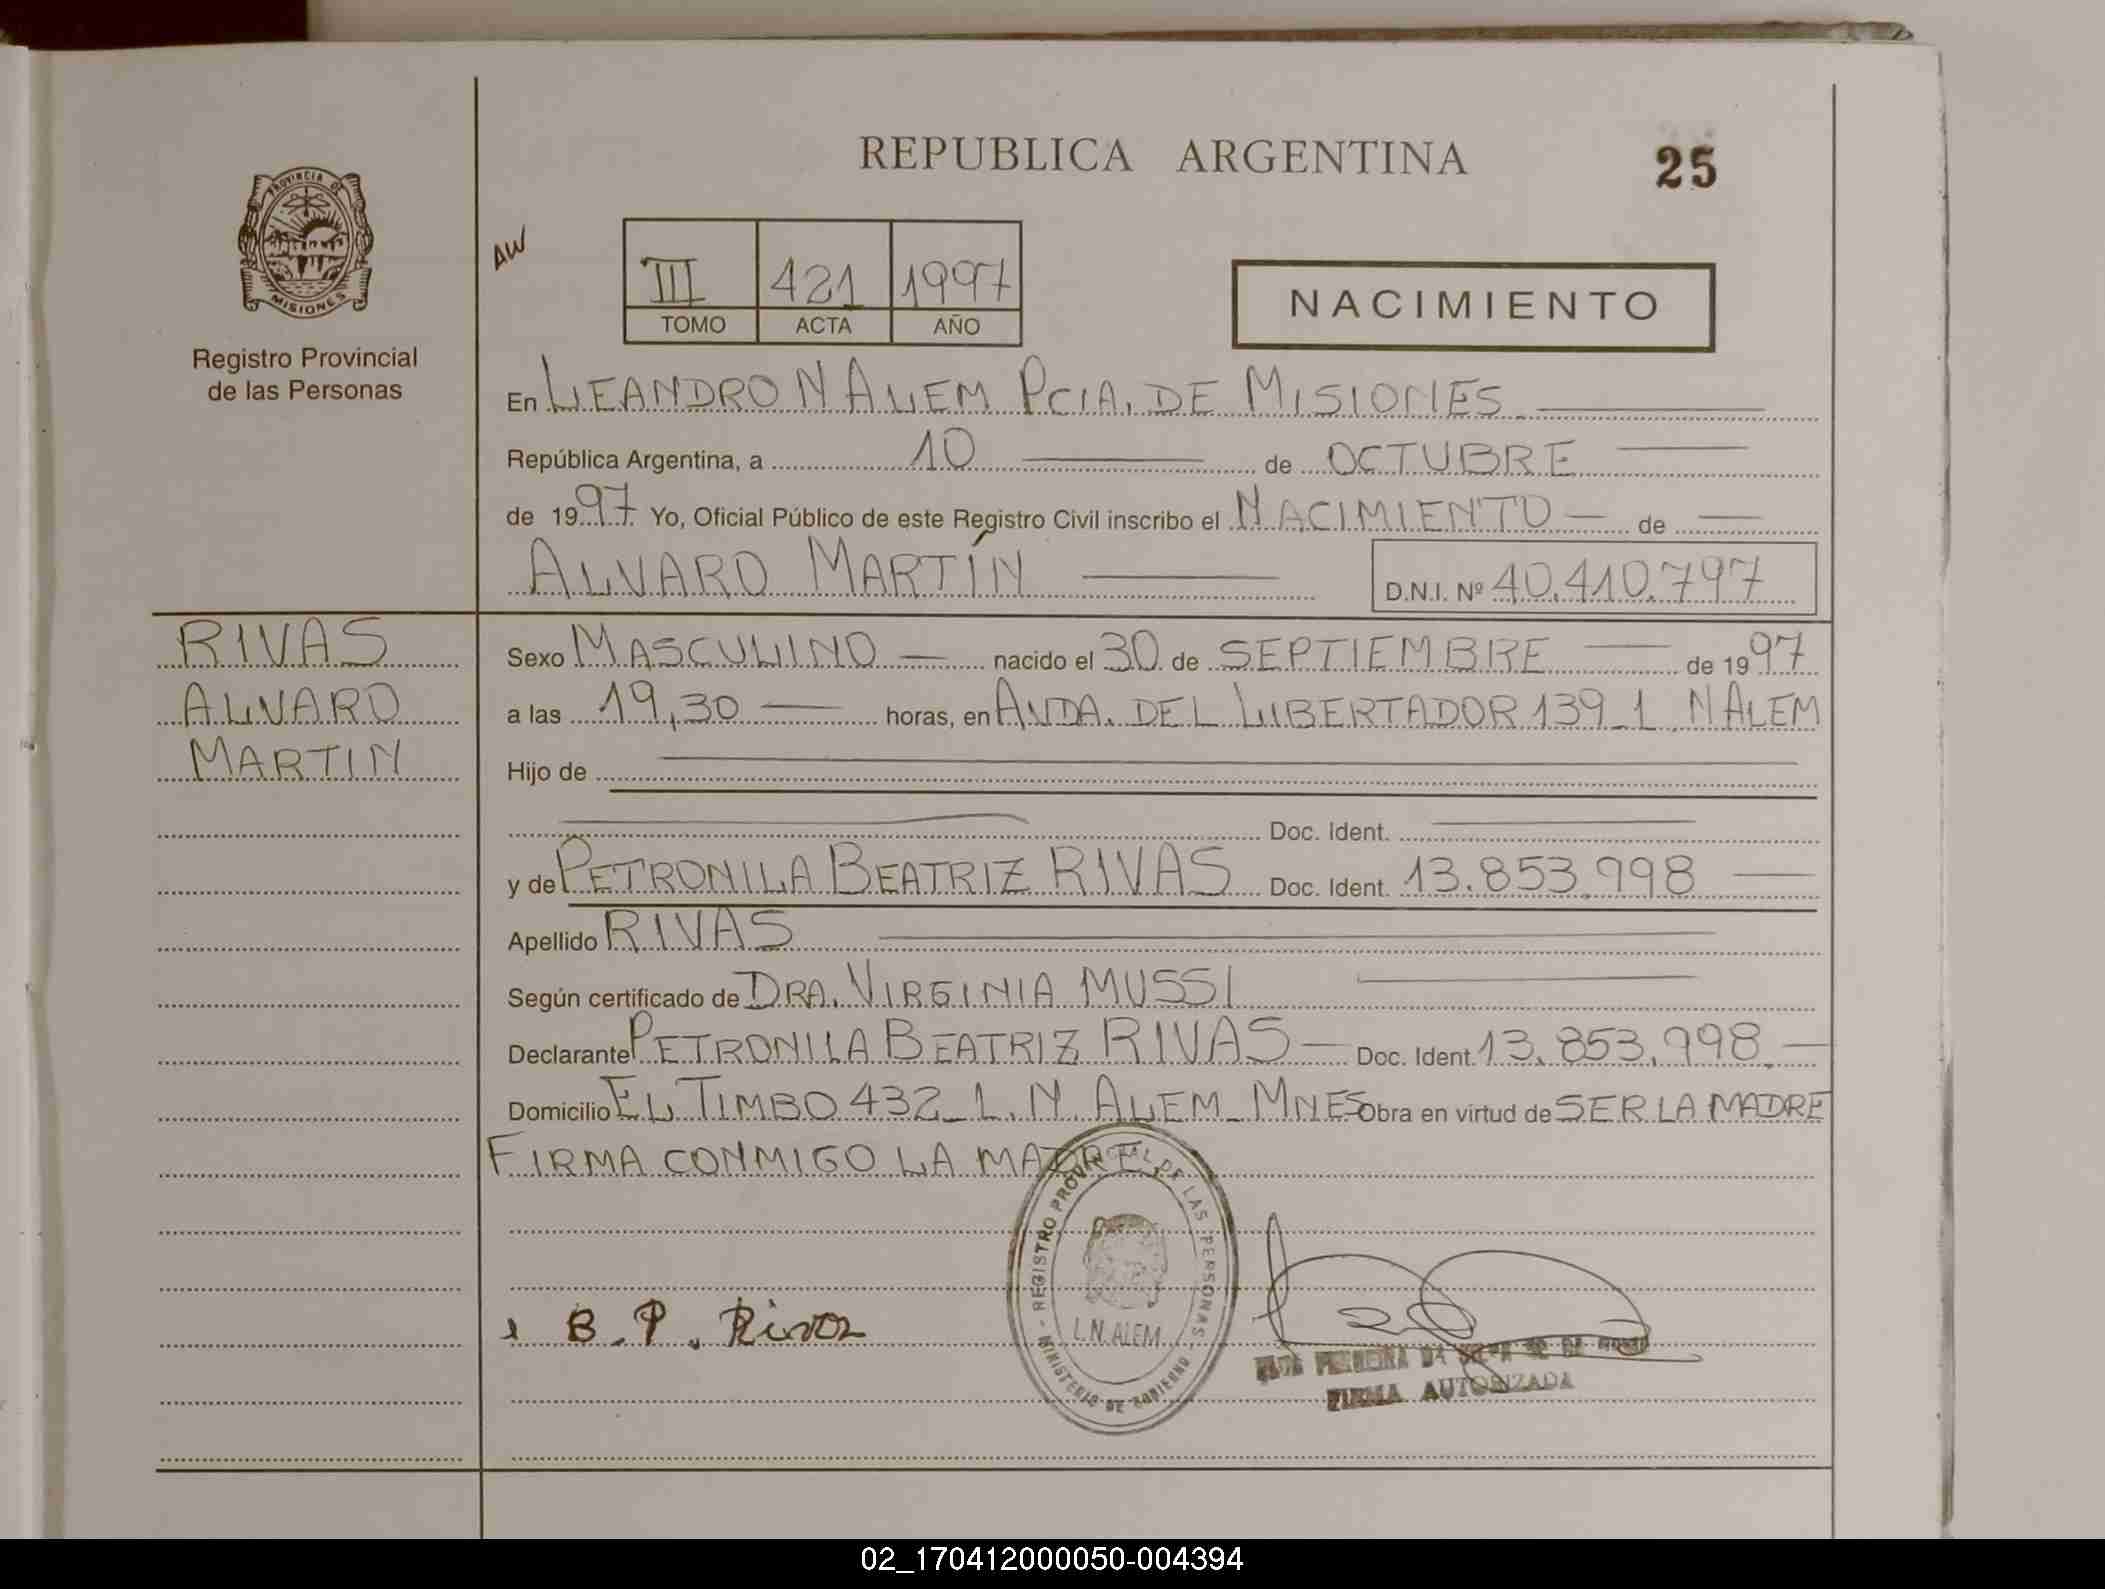 REPUBLICA ARGENTINA
25
PROVINCIA DE
MISIONES
Registro Provincial
de las Personas
AW
III 421 1997
TOMO ACTA AÑO
NACIMIENTO
En LEANDRO N ALEM PCIA. DE MISIONES
República Argentina, a 10 de OCTUBRE
de 1997 Yo, Oficial Público de este Registro Civil inscribo el NACIMIENTO de
ALVARO MARTÍN D.N.I. Nº 40.410.797
RIVAS
ALVARO
MARTIN
Sexo MASCULINO nacido el 30 de SEPTIEMBRE de 1997
a las 19,30 horas, en AVDA. DEL LIBERTADOR 139_L N ALEM
Hijo de
Doc. Ident.
y de PETRONILA BEATRIZ RIVAS Doc. Ident. 13.853.998
Apellido RIVAS
Según certificado de DRA. VIRGINIA MUSSI
Declarante PETRONILA BEATRIZ RIVAS Doc. Ident. 13.853.998
Domicilio EL TIMBO 432_L.N. ALEM_MNES Obra en virtud de SER LA MADRE
FIRMA CONMIGO LA MADRE.
REGISTRO PROVINCIAL DE LAS PERSONAS
L.N. ALEM
MINISTERIO DE GOBIERNO
B. P. Rivas
FIRMA AUTORIZADA
02_170412000050-004394